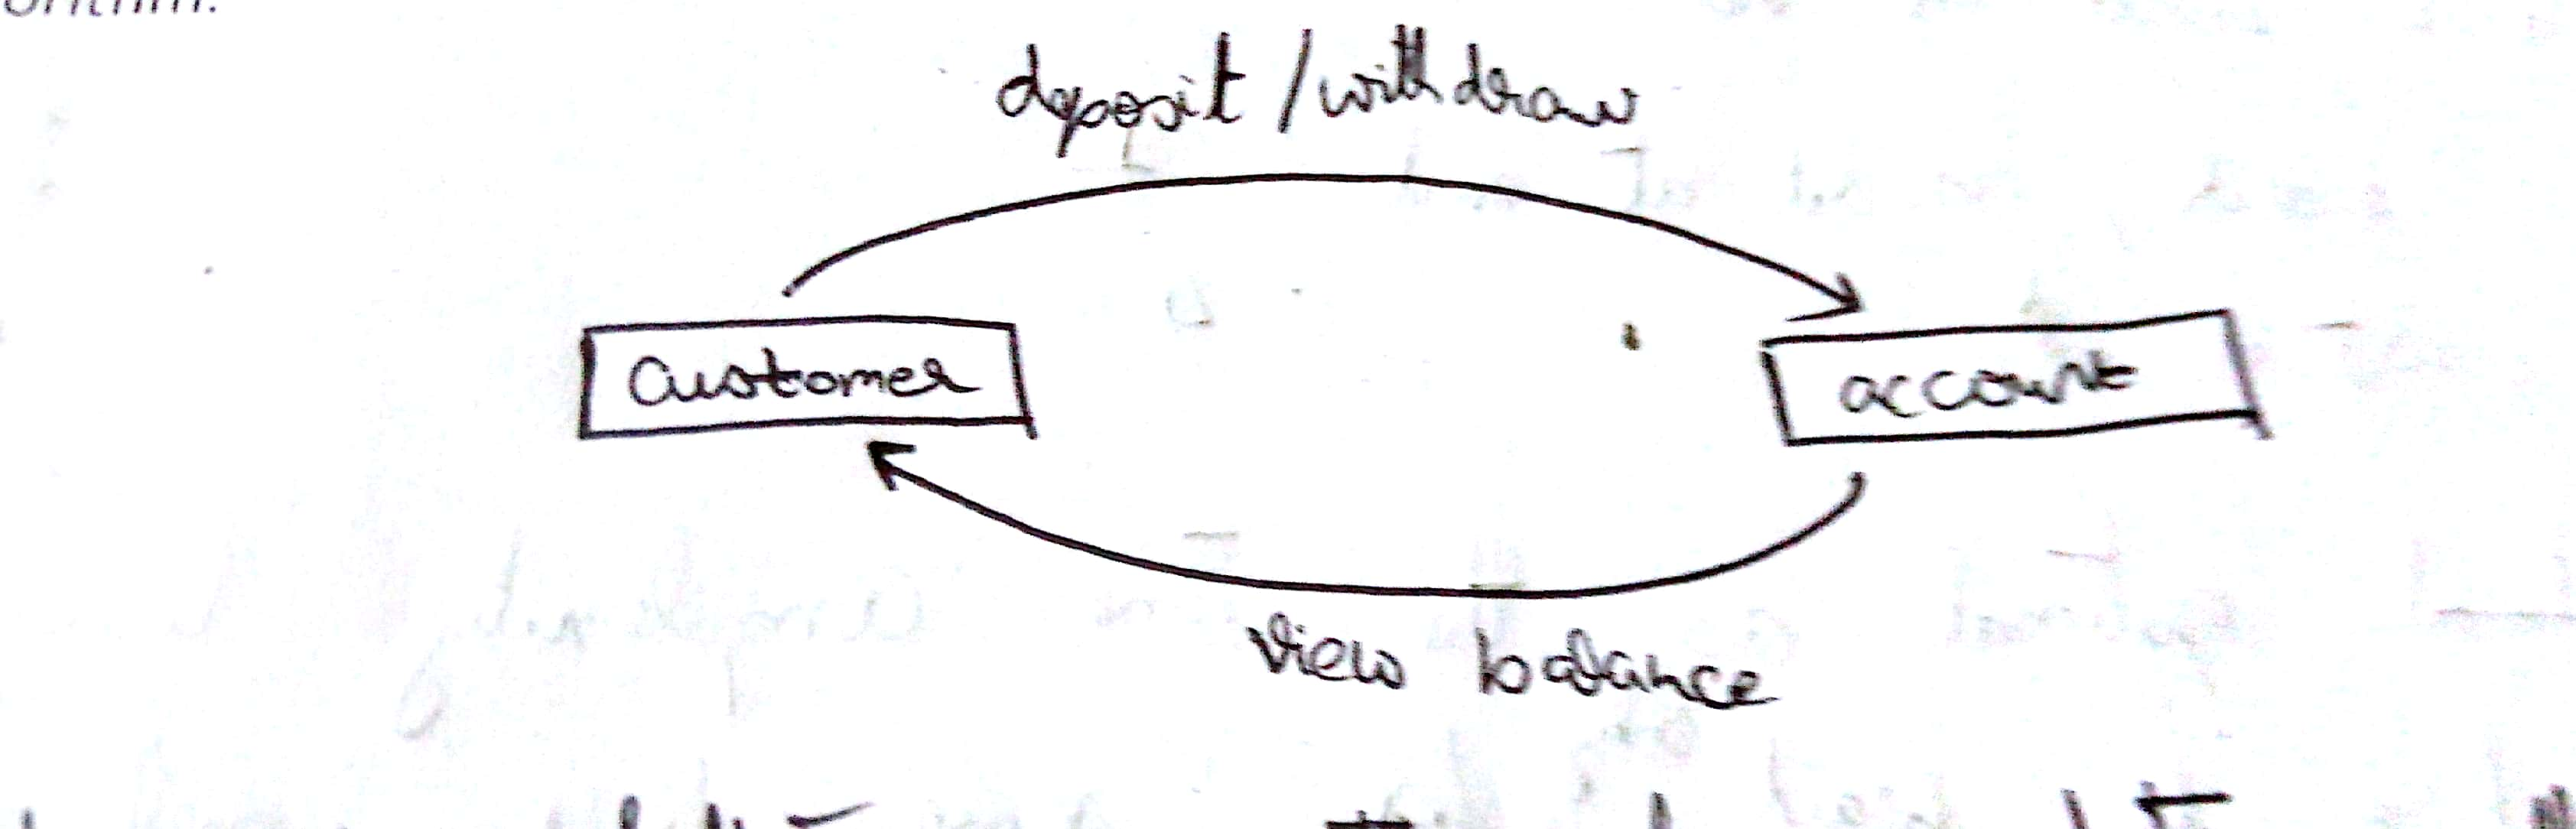 deposit / withdraw
Customer
account
view balance